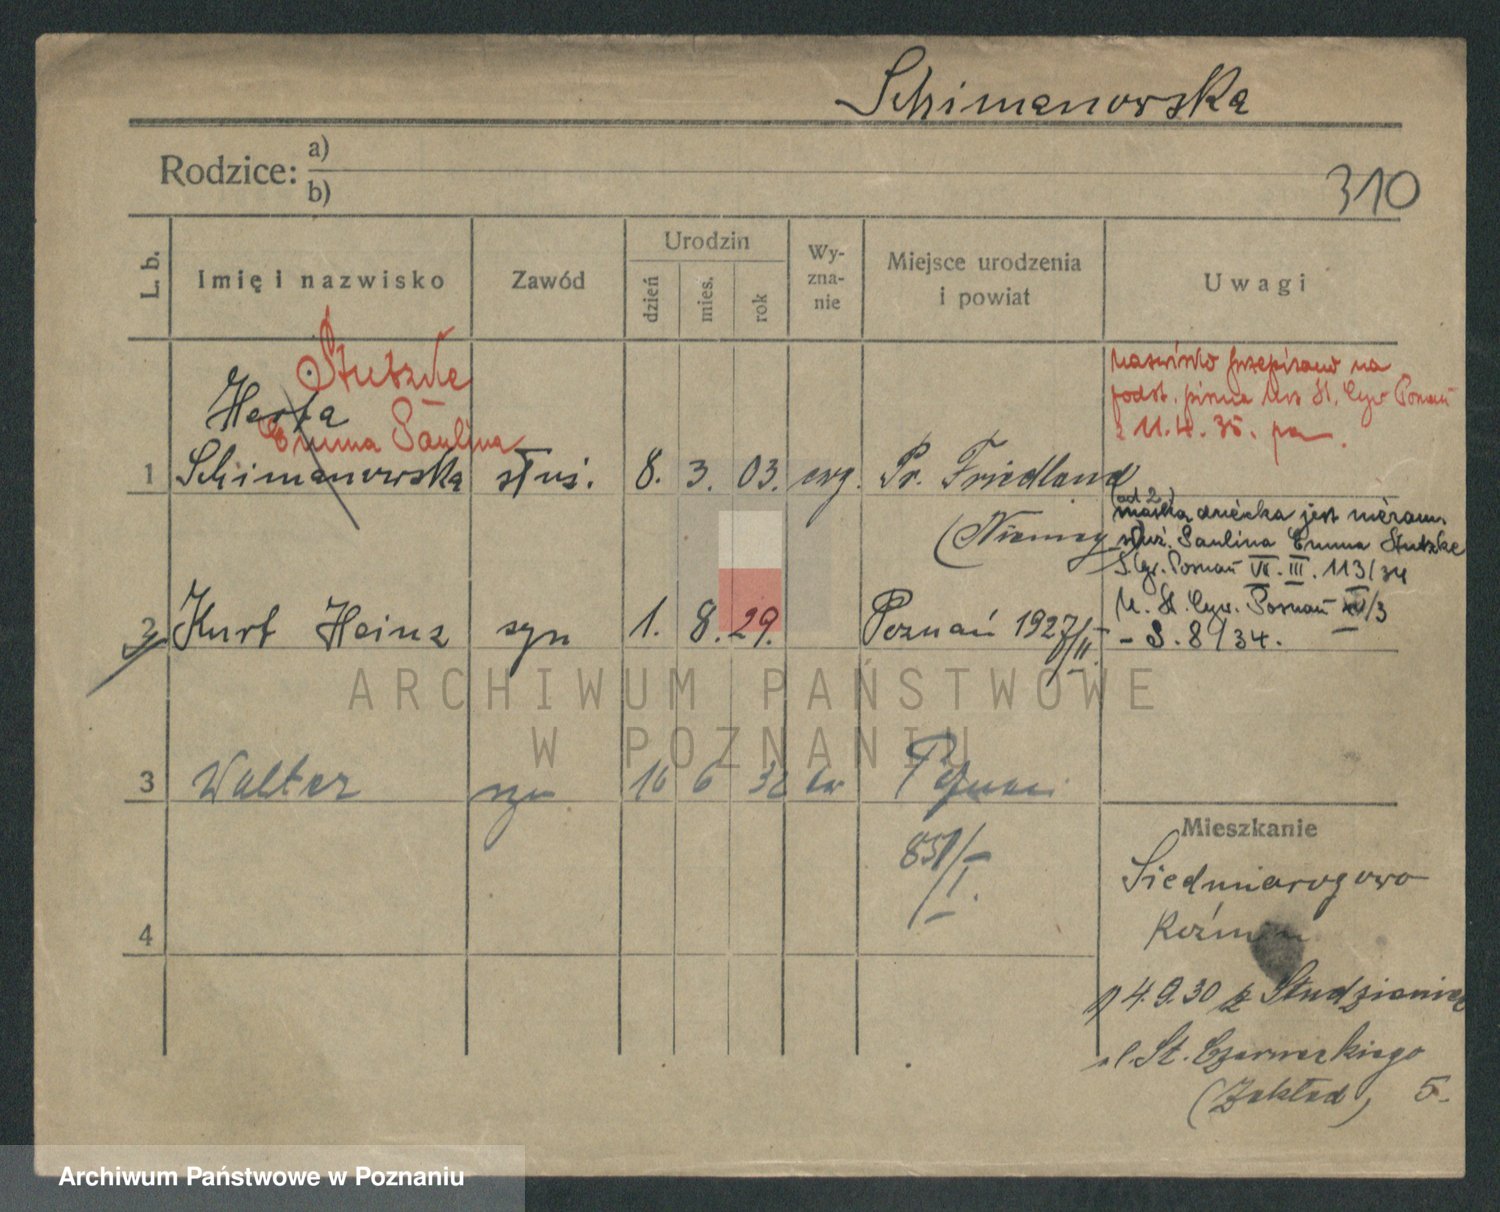 Schimanowska
Rodzice: a)
b)
310
L. b.
Imię i nazwisko
Zawód
Urodzin
dzień
mies.
rok
Wy-
zna-
nie
Miejsce urodzenia
i powiat
Uwagi
Stutzke
Herta
Emma Paulina
1 Schimanowska służ. 8. 3. 03. ewg. Pr. Friedland
(Niemcy)
nazwisko przepisano na
podst. pisma Urz St. Cyw Poznań
z 11.4.35.
(ad 2.)
matką dziecka jest niezam.
służ. Paulina Emma Stutzke
S. Gr. Poznań VII. III. 113/34
U. St. Cyw. Poznań /3
- S. 8/34.
2 Kurt Heinz syn 1. 8. 29. Poznań 1927/II.
3 Walter syn 16 6 32 ew Poznań
851/I.
4
Mieszkanie
Siedmiorogowo
Koźmin
4.9.30 z Studzieniec
St. Czarneckiego
(Zakład) 5.
ARCHIWUM PAŃSTWOWE
W POZNANIU
Archiwum Państwowe w Poznaniu